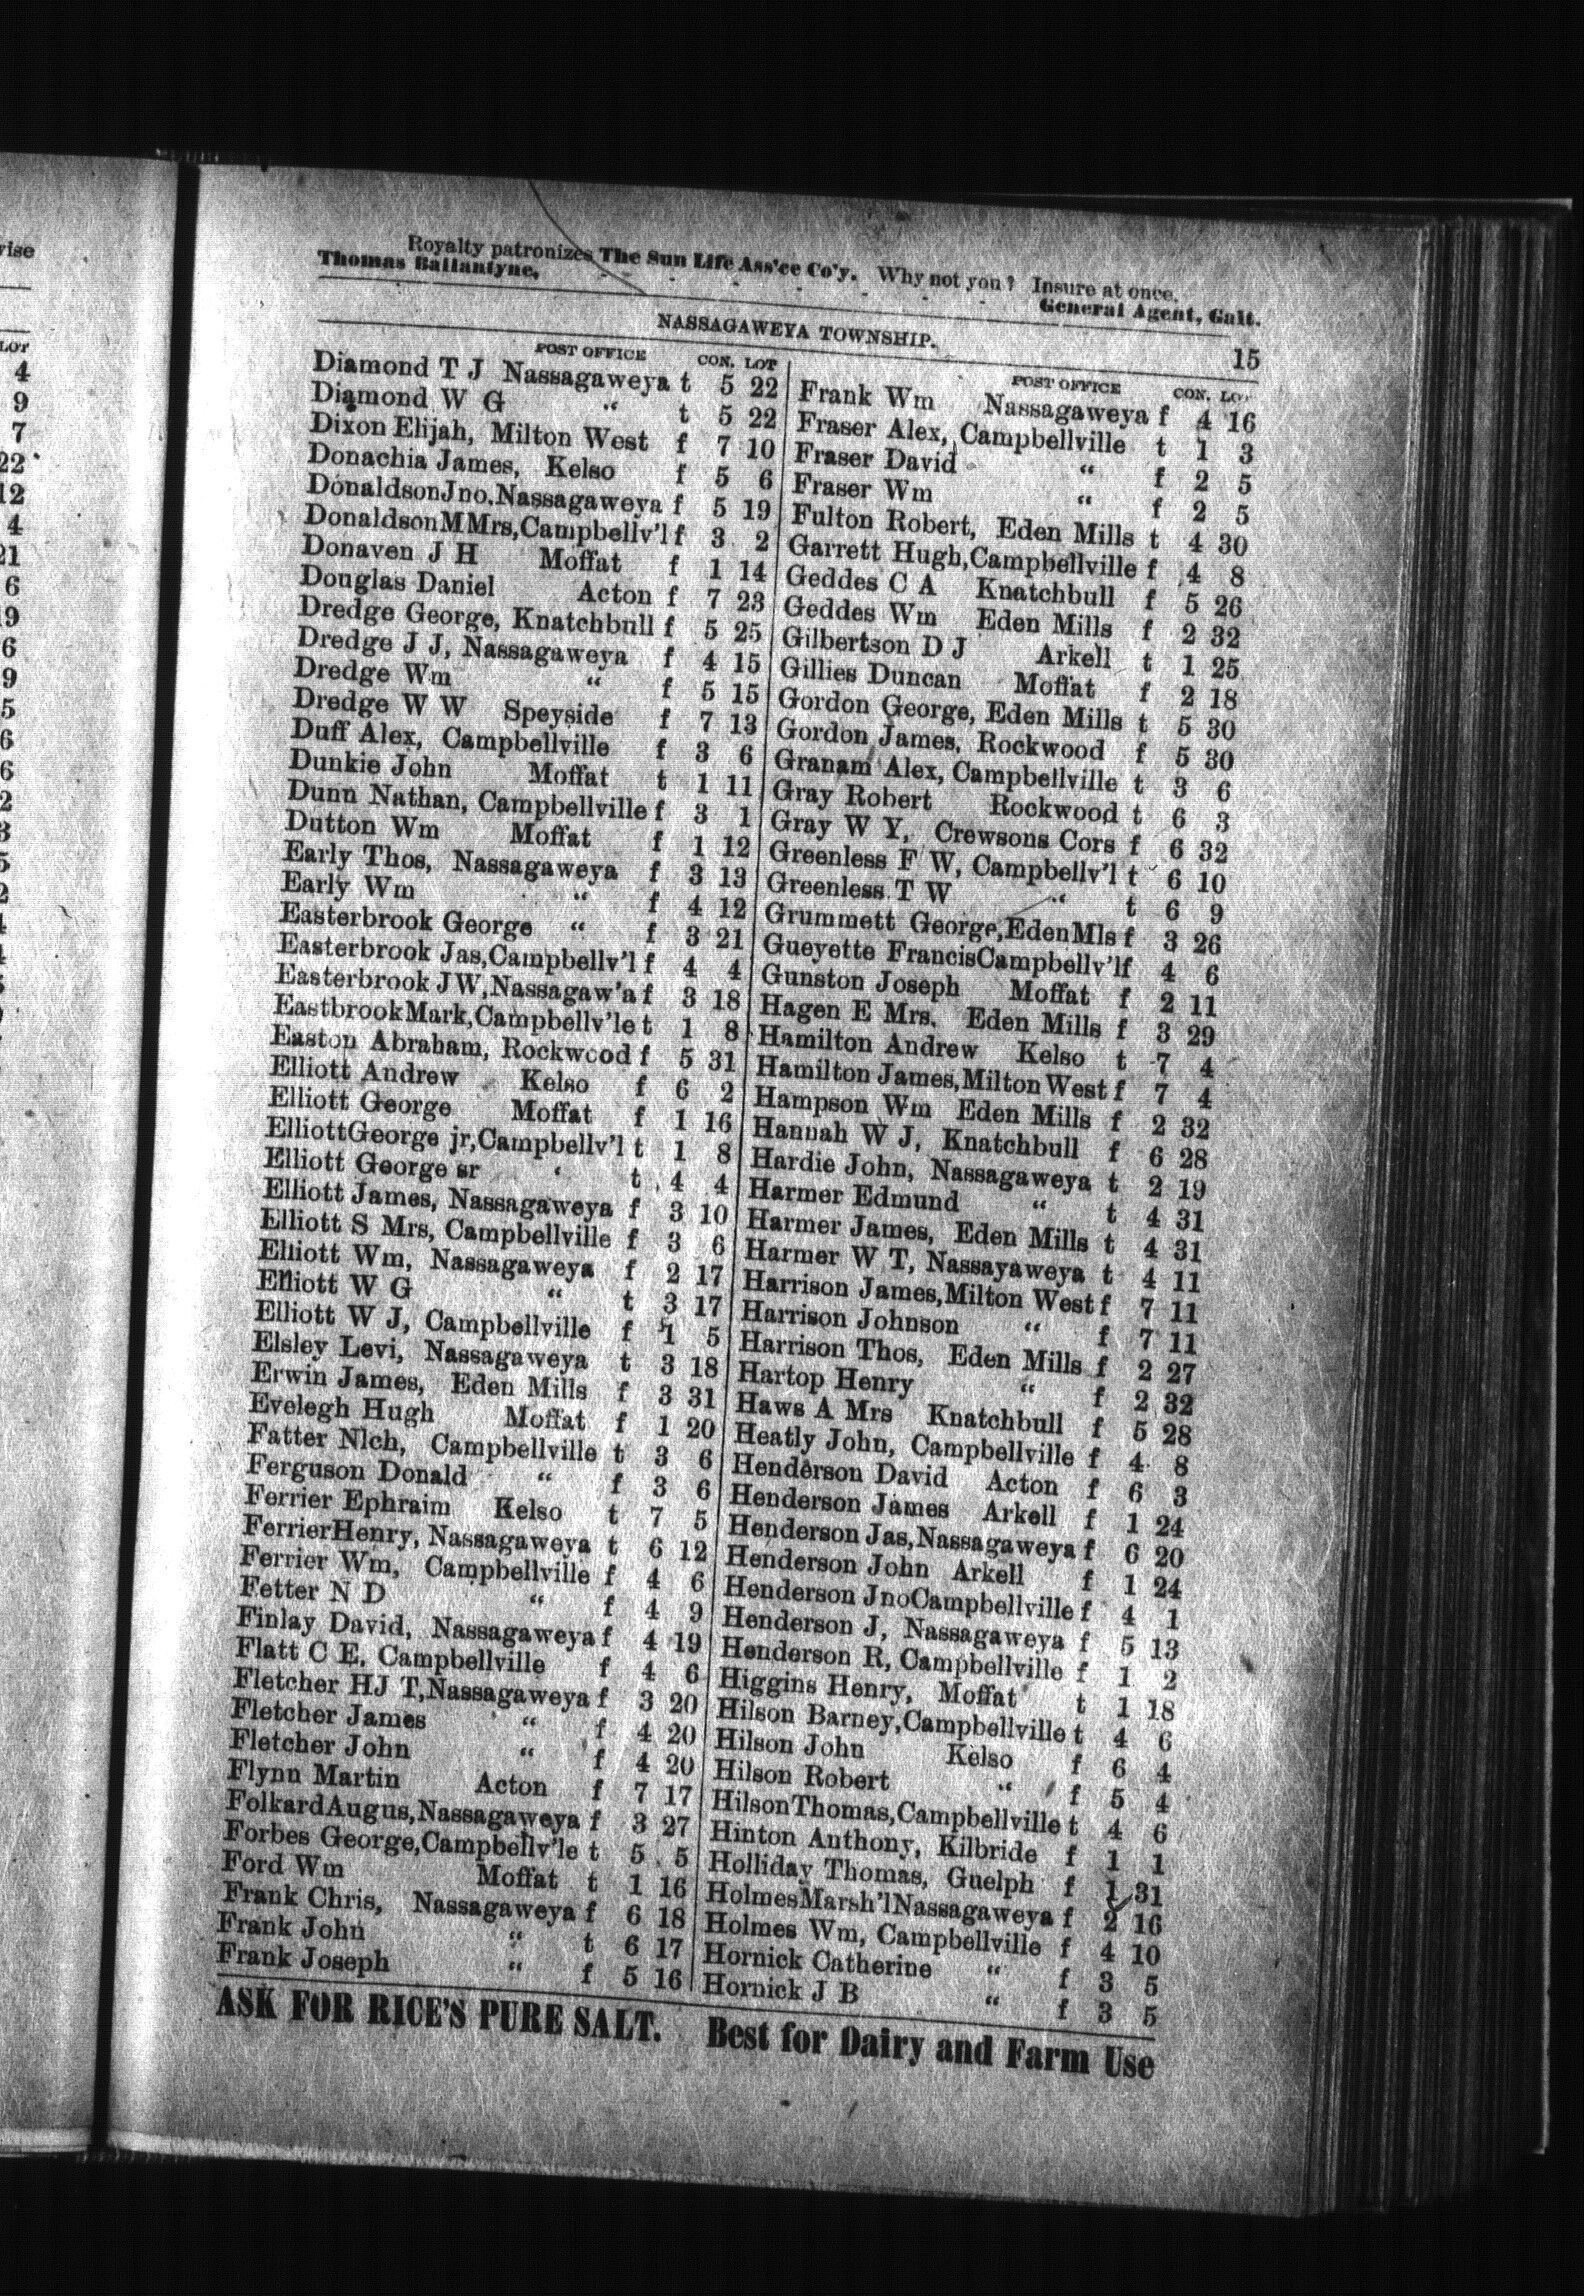 vise
LOT
4
9
7
22
12
4
21
6
19
6
9
5
6
6
2
3
5
2
Royalty patronizes The Sun Life Ass'ce Co'y. Why not you? Insure at once.
Thomas Ballantyne, - - - - - - - General Agent, Galt.
NASSAGAWEYA TOWNSHIP. 15
POST OFFICE CON. LOT
Diamond T J Nassagaweya t 5 22
Diamond W G " t 5 22
Dixon Elijah, Milton West f 7 10
Donachia James, Kelso f 5 6
Donaldson Jno. Nassagaweya f 5 19
Donaldson M Mrs, Campbellv'l f 3 2
Donaven J H Moffat f 1 14
Douglas Daniel Acton f 7 23
Dredge George, Knatchbull f 5 25
Dredge J J, Nassagaweya f 4 15
Dredge Wm " f 5 15
Dredge W W Speyside f 7 13
Duff Alex, Campbellville f 3 6
Dunkie John Moffat t 1 11
Dunn Nathan, Campbellville f 3 1
Dutton Wm Moffat f 1 12
Early Thos, Nassagaweya f 3 13
Early Wm " f 4 12
Easterbrook George " f 3 21
Easterbrook Jas, Campbellv'l f 4 4
Easterbrook J W, Nassagaw'a f 3 18
Eastbrook Mark, Campbellv'le t 1 8
Easton Abraham, Rockwood f 5 31
Elliott Andrew Kelso f 6 2
Elliott George Moffat f 1 16
Elliott George jr, Campbellv'l t 1 8
Elliott George sr ‘ t 4 4
Elliott James, Nassagaweya f 3 10
Elliott S Mrs, Campbellville f 3 6
Elliott Wm, Nassagaweya f 2 17
Elliott W G " t 3 17
Elliott W J, Campbellville f 1 5
Elsley Levi, Nassagaweya t 3 18
Erwin James, Eden Mills f 3 31
Evelegh Hugh Moffat f 1 20
Fatter Nlch, Campbellville t 3 6
Ferguson Donald " f 3 6
Ferrier Ephraim Kelso t 7 5
Ferrier Henry, Nassagaweya t 6 12
Ferrier Wm, Campbellville f 4 6
Fetter N D " f 4 9
Finlay David, Nassagaweya f 4 19
Flatt C E, Campbellville f 4 6
Fletcher HJ T, Nassagaweya f 3 20
Fletcher James " f 4 20
Fletcher John " f 4 20
Flynn Martin Acton f 7 17
Folkard Augus, Nassagaweya f 3 27
Forbes George, Campbellv'le t 5 5
Ford Wm Moffat t 1 16
Frank Chris, Nassagaweya f 6 18
Frank John " t 6 17
Frank Joseph " f 5 16
POST OFFICE CON. LOT
Frank Wm Nassagaweya f 4 16
Fraser Alex, Campbellville t 1 3
Fraser David " f 2 5
Fraser Wm " f 2 5
Fulton Robert, Eden Mills t 4 30
Garrett Hugh, Campbellville f 4 8
Geddes C A Knatchbull f 5 26
Geddes Wm Eden Mills f 2 32
Gilbertson D J Arkell t 1 25
Gillies Duncan Moffat f 2 18
Gordon George, Eden Mills t 5 30
Gordon James, Rockwood f 5 30
Granam Alex, Campbellville t 3 6
Gray Robert Rockwood t 6 3
Gray W Y, Crewsons Cors f 6 32
Greenless F W, Campbellv'l t 6 10
Greenless T W " t 6 9
Grummett George, Eden Mls f 3 26
Gueyette Francis Campbellv'l f 4 6
Gunston Joseph Moffat f 2 11
Hagen E Mrs. Eden Mills f 3 29
Hamilton Andrew Kelso t 7 4
Hamilton James, Milton West f 7 4
Hampson Wm Eden Mills f 2 32
Hannah W J, Knatchbull f 6 28
Hardie John, Nassagaweya t 2 19
Harmer Edmund " t 4 31
Harmer James, Eden Mills t 4 31
Harmer W T, Nassayaweya t 4 11
Harrison James, Milton West f 7 11
Harrison Johnson " f 7 11
Harrison Thos, Eden Mills f 2 27
Hartop Henry " f 2 32
Haws A Mrs Knatchbull f 5 28
Heatly John, Campbellville f 4 8
Henderson David Acton f 6 3
Henderson James Arkell f 1 24
Henderson Jas, Nassagaweya f 6 20
Henderson John Arkell f 1 24
Henderson Jno Campbellville f 4 1
Henderson J, Nassagaweya f 5 13
Henderson R, Campbellville f 1 2
Higgins Henry, Moffat t 1 18
Hilson Barney, Campbellville t 4 6
Hilson John Kelso f 6 4
Hilson Robert " f 5 4
Hilson Thomas, Campbellville t 4 6
Hinton Anthony, Kilbride f 1 1
Holliday Thomas, Guelph f 1 31
Holmes Marsh'l Nassagaweya f 2 16
Holmes Wm, Campbellville f 4 10
Hornick Catherine " f 3 5
Hornick J B " f 3 5
ASK FOR RICE'S PURE SALT. Best for Dairy and Farm Use